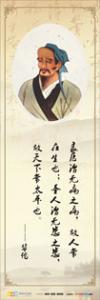 良医治无病之病，故人常
在生也；圣人治无患之患，
故天下常太平也。
——华佗